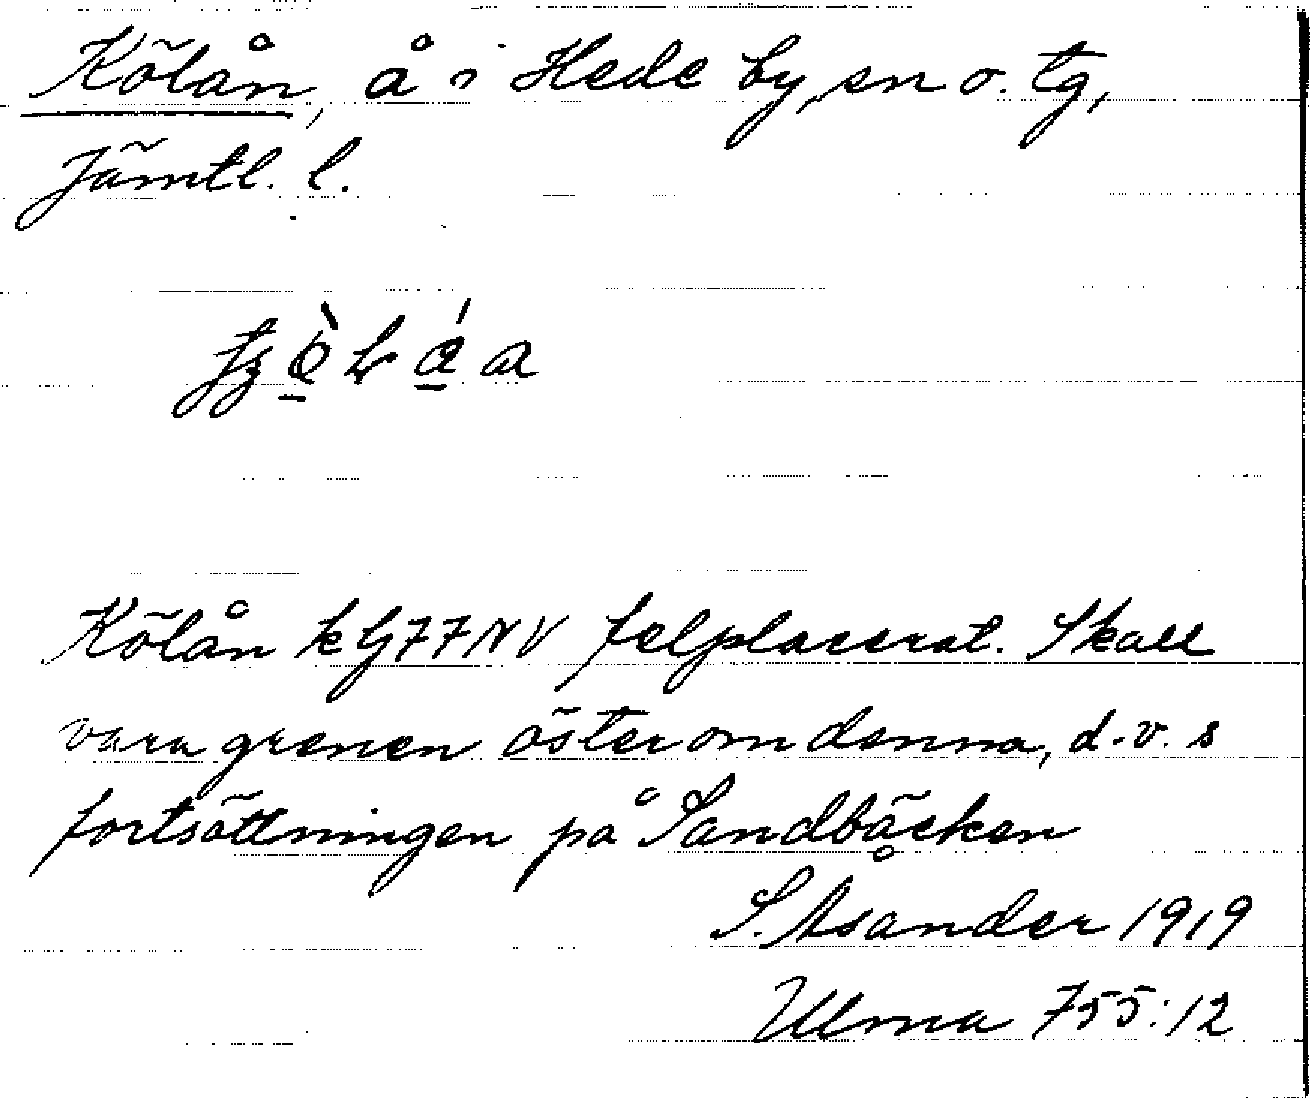 Kölån, å i Hede by, sn o. tg,
Jämtl. l.
Kölån k G77NV felplacerat. Skall
vara grenen öster om denna, d.v.s
fortsättningen på Sandbäcken
S. Åsander 1919
Ulma 755:12